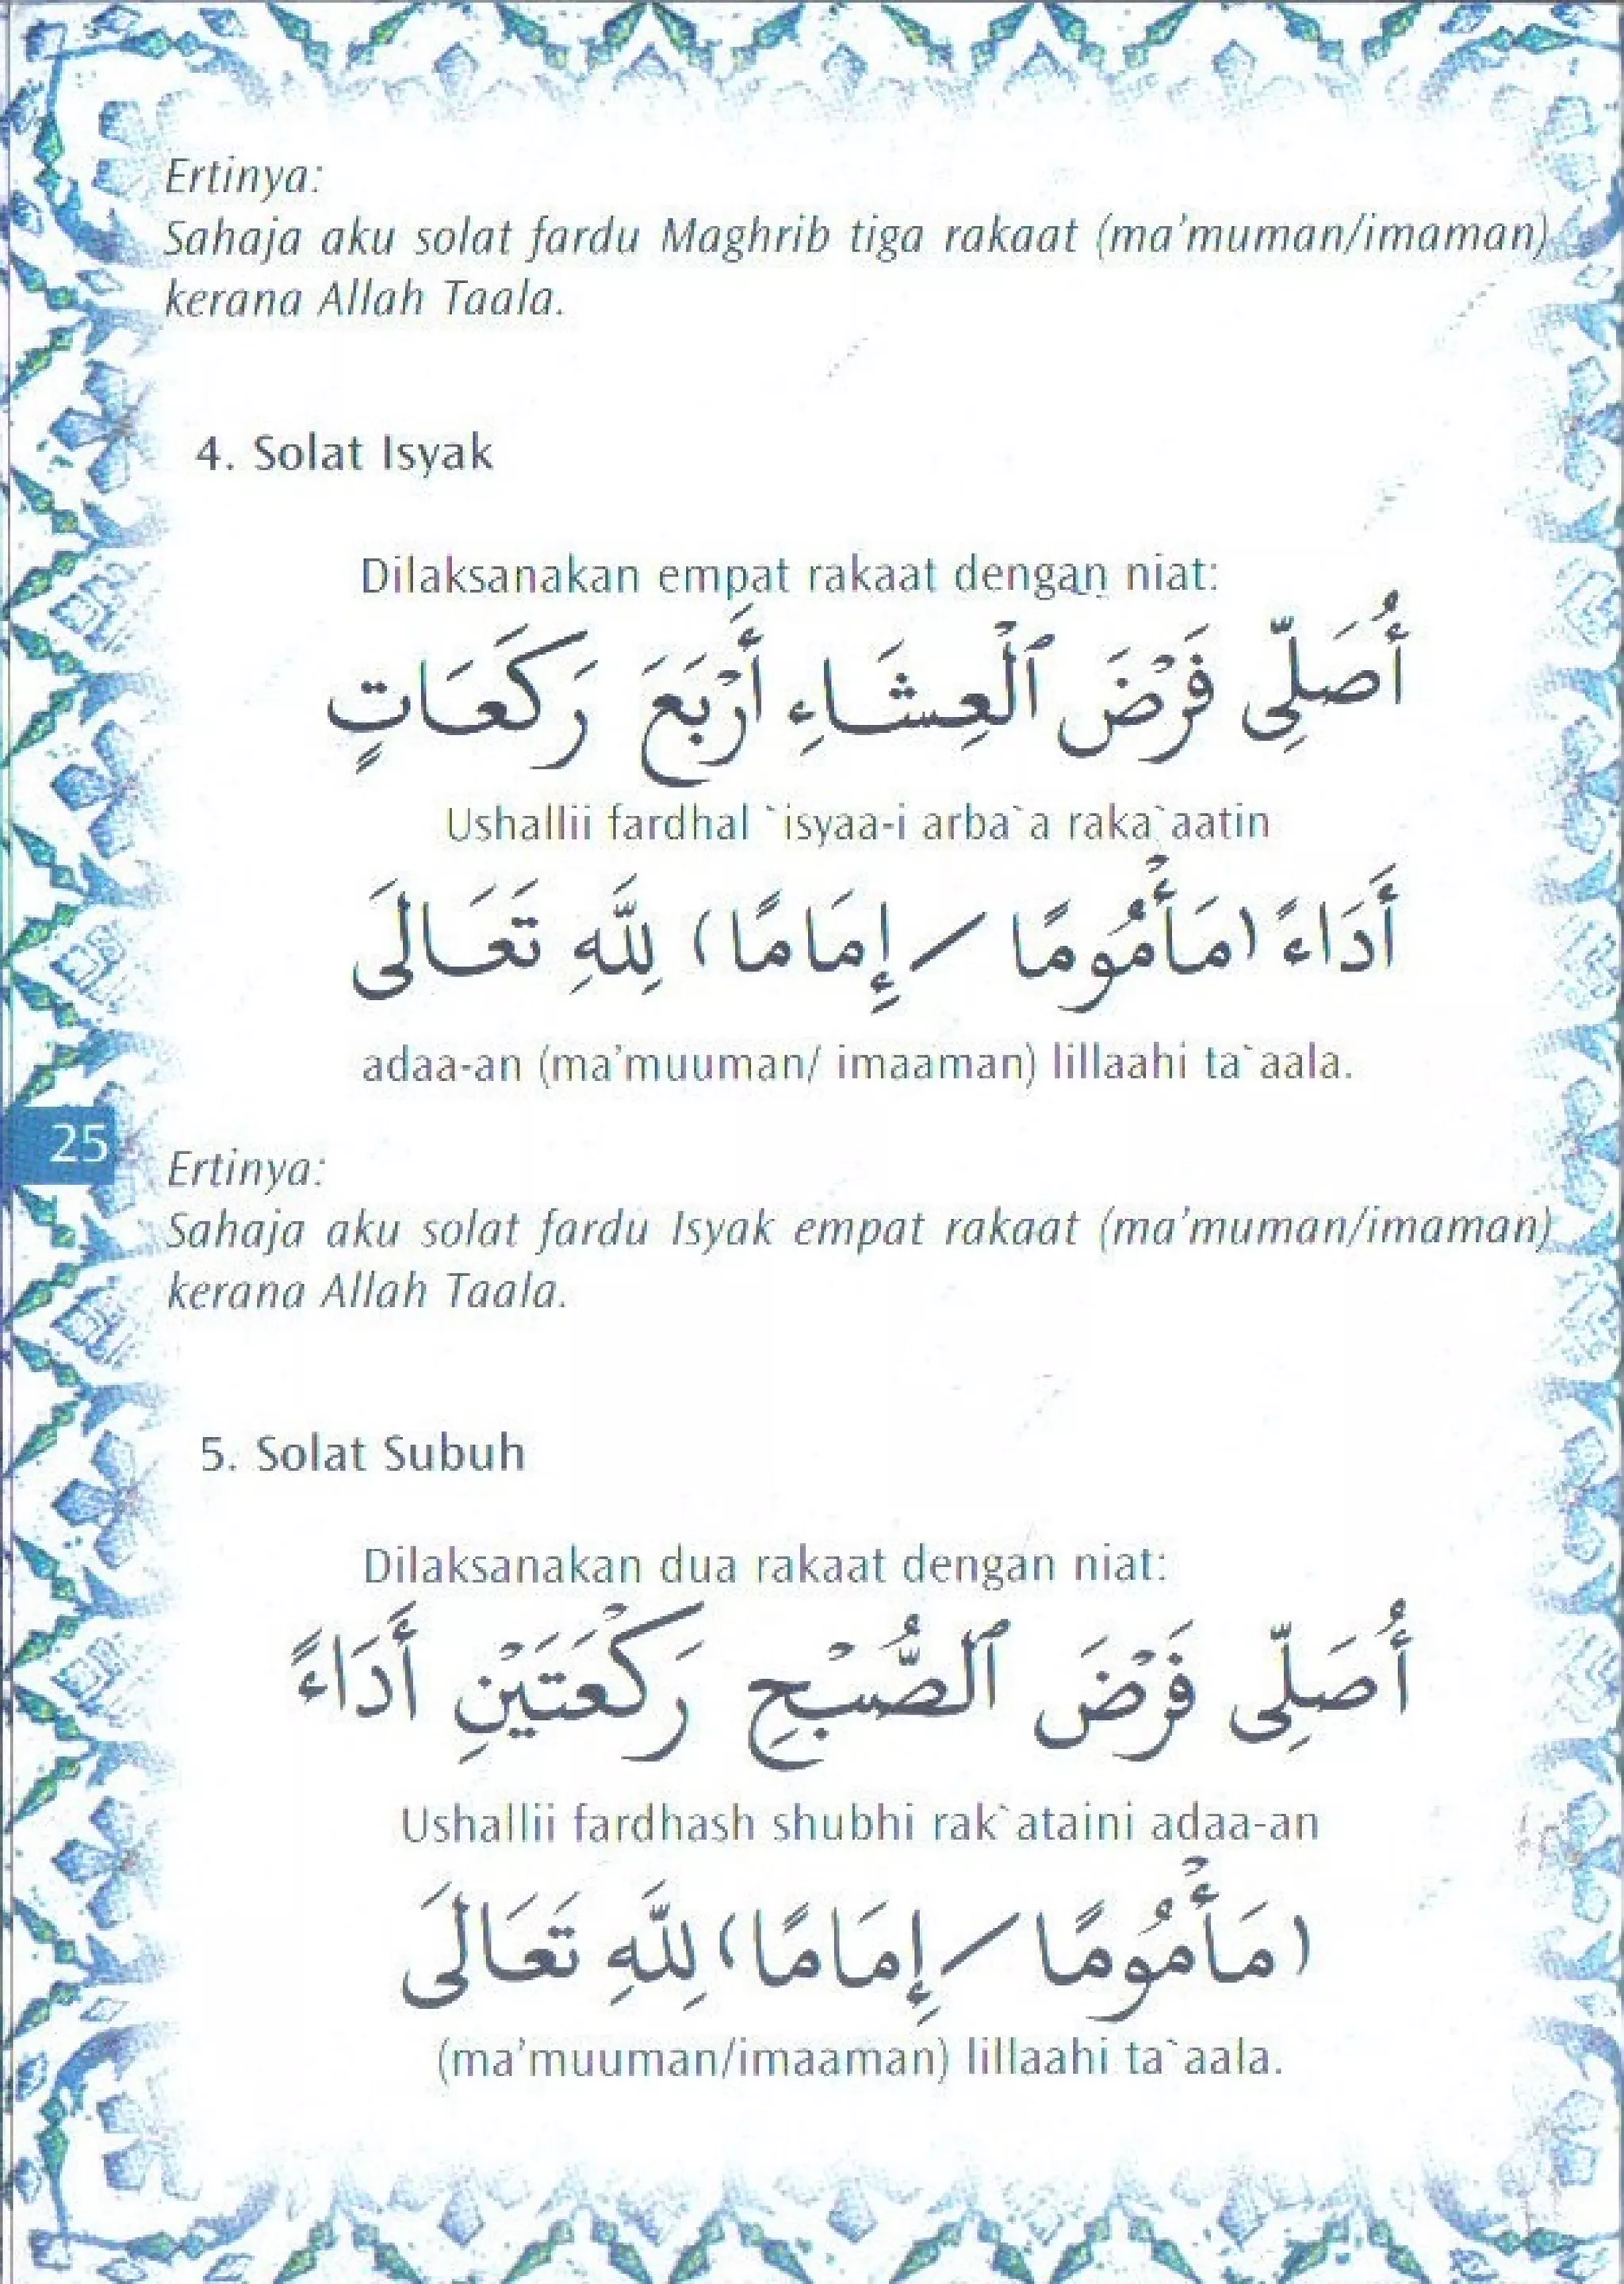 Ertinya:
Sahaja aku solat fardu Maghrib tiga rakaat (ma'muman/imaman)
kerana Allah Taala.
4. Solat Isyak
Dilaksanakan empat rakaat dengan niat:
أُصَلِّى فَرْضَ ٱلْعِشَاءِ أَرْبَعَ رَكَعَاتٍ
Ushallii fardhal `isyaa-i arba`a raka`aatin
أَدَاءً (مَأْمُومًا / إِمَامًا) لِلَّهِ تَعَالَى
adaa-an (ma'muuman/ imaaman) lillaahi ta`aala.
25
Ertinya:
Sahaja aku solat fardu Isyak empat rakaat (ma'muman/imaman)
kerana Allah Taala.
5. Solat Subuh
Dilaksanakan dua rakaat dengan niat:
أُصَلِّى فَرْضَ ٱلصُّبْحِ رَكْعَتَيْنِ أَدَاءً
Ushallii fardhash shubhi rak`ataini adaa-an
(مَأْمُومًا / إِمَامًا) لِلَّهِ تَعَالَى
(ma'muuman/imaaman) lillaahi ta`aala.